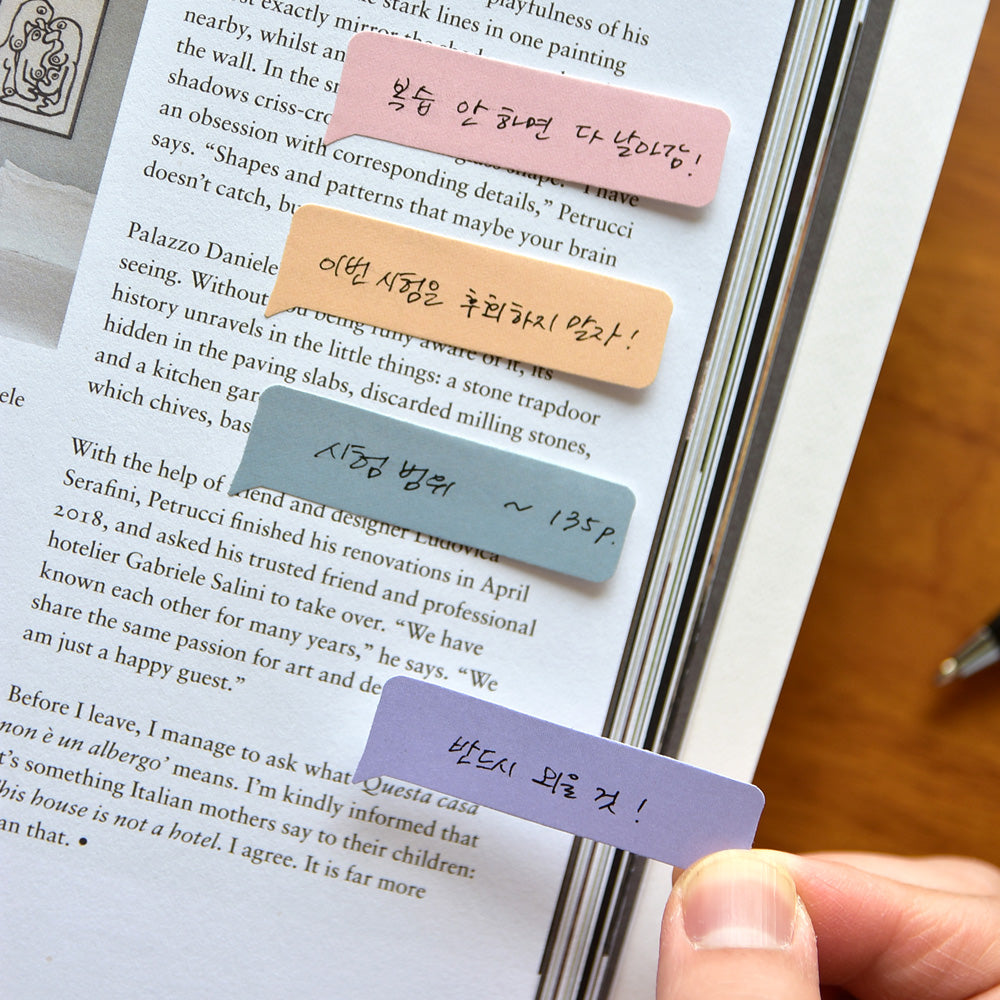 playfulness of his
stark lines in one painting
exactly mirror the
nearby, whilst an
the wall. In the
shadows criss-cro
an obsession with corresponding details,” Petrucci
says. “Shapes and patterns that maybe your brain
doesn’t catch, bu
복습 안 하면 다 날아감!
shape.” “I have
Palazzo Daniele
seeing. Without
being fully aware of it, its
history unravels in the little things: a stone trapdoor
hidden in the paving slabs, discarded milling stones,
and a kitchen gar
which chives, bas
이번 시험은 후회하지 말자!
ele
시험 범위 ~ 135p.
With the help of friend and designer Ludovica
Serafini, Petrucci finished his renovations in April
2018, and asked his trusted friend and professional
hotelier Gabriele Salini to take over. “We have
known each other for many years,” he says. “We
share the same passion for art and de
am just a happy guest.”
반드시 외울 것!
Before I leave, I manage to ask what ‘Questa casa
non è un albergo’ means. I’m kindly informed that
it’s something Italian mothers say to their children:
this house is not a hotel. I agree. It is far more
an that. •